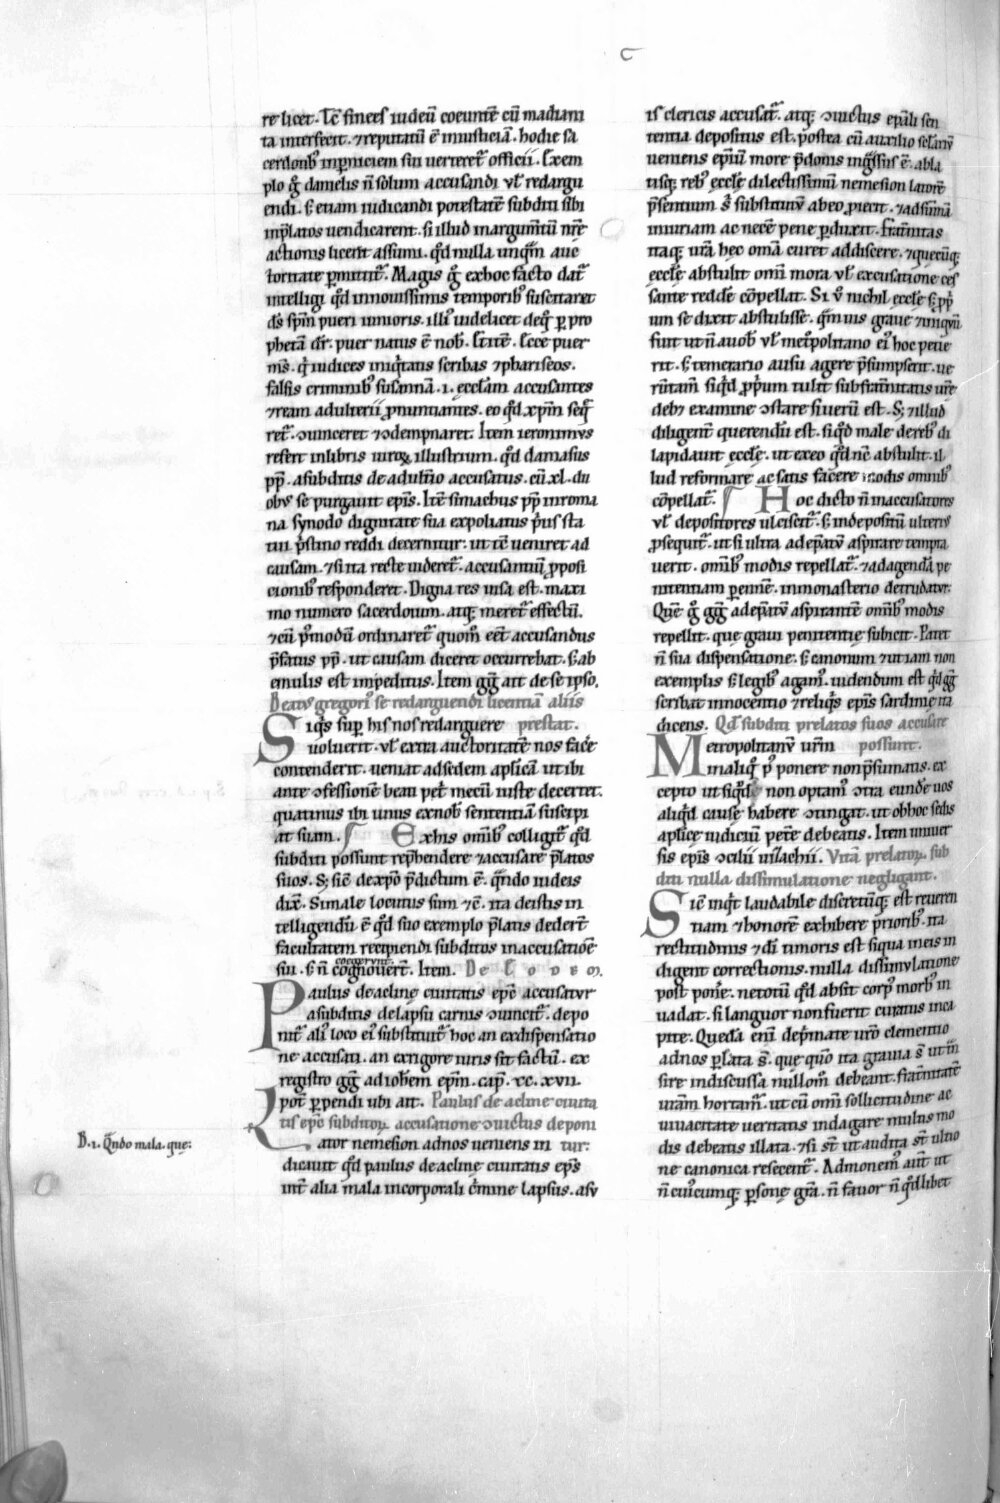 re licet. Itē finees iudeū coeuntē cū madiani
ta interfecit. ⁊ reputatū ē in iusticiā. hodie sa
cerdotib; in p̄niciem sui ueteret᷑ officii. Exem
plo g̊ danielis n̄ solum accusandi uł redargu
endi. s; etiam iudicandi potestatē subditi sibi
in p̄latos uendicarent. si illud in argum̄tū nr̄e
actionis liceret assumi. qd̄ nulla unq̄m auc
toritate ꝑmittit᷑. Magis g̊ ex hoc facto dat᷑
intelligi qd̄ in nouissimis temporib; suscitaret
dś sp̄m pueri iunioris. illi᷒ uidelicet de q̊ ꝑ pro
phetā dr̄. puer natus ē nob̄. Itē. Ecce puer
ms̄. q̇ iudices iniq̇tatis scribas ⁊ phariseos.
falsis criminib; susannā .i. ecclām accusantes
⁊ ream adulterii ꝓnuntiantes. eo qd̄ xp̄m seq̄
ret᷑. ↄuinceret ⁊ ↄdempnaret. Item ieronimus
refert in libris uiroꝝ illustrium. qd̄ damasus
pp̄. a subditis de adult̄io accusatus. cū xl. du
ob; se purgauit ep̄is. Itē simachus pp̄ in roma
na synodo dignitate sua expoliatus p̄us sta
tui p̄stino reddi decernitur. ut tc̄ ueniret ad
causam. ⁊ si ita recte uideret᷑. accusantiū ꝓposi
cionib; responderet. Digna res uisa est. maxi
mo numero sacerdotum. atq; meret᷑ effectū.
⁊ cū p̄modū ordinaret᷑ quom̄ eēt accusandus
p̄fatus pp̄. ut causam diceret occurrebat. s; ab
emulis est impeditus. Item gg̃ ait de se ipso.
Beatus gregori᷒ se redarguendi licentiā aliis
Siq̇s sup̄ his nos redarguere prestat.
uoluerit. uł extra auctoritatē nos facere
contenderit. ueniat ad sedem aplīcā ut ibi
ante ↄfessionē beati pet̄ mecū iuste decertet.
quatinus ibi unus ex nob̄ sententiā suscipi
at suam. Ex his omīb; colligit᷑ qd̄
subditi possunt rep̄hendere ⁊ accusare p̄latos
suos. S; sic̄ de xp̄o p̄dictum ē. q̄ndo iudeis
dix̄. Si male locutus sum ⁊c̄. ita de istis in
telligendū ē qd̄ suo exemplo p̄latis dederit
facultatem recipiendi subditos in accusatiōe
coegerunt.
sui. s; n̄ cognouert̄. Item. De eodem.
Paulus de acline ciuitatis ep̄c accusatur
a subditis de lapsu carnis ↄuincit᷑. depo
nit᷑ ali᷒ loco ei᷒ substituit᷑ hoc an ex dispensatio
ne accusati. an ex rigore iuris sit factū. ex
registro gg̃ ad ioh̄em ep̄m. cap̄. xc. xvii.
pot̄ ꝑpendi ubi ait. Paulus de acline ciuita
tis ep̄c subditoꝝ accusatione ↄuictus deponi
Lator nemesion ad nos ueniens in tur:
D. i. Q̄ndo mala. que:
dicauit qd̄ paulus de acline ciuitatis ep̄s
int̄ alia mala in corporali c̄mine lapsus. a su
is clericis accusat᷑. atq; ↄuictus ep̄ali sen
tentia depositus est. postea cū auxilio seclariū
ueniens ep̄iū more p̄donis ingr̄ssus ē. abla
tisq; reb; eccl̄ę dilectissimū nemesion latorē
p̄sentium s; substitutū ab eo ꝓiecit. ⁊ ad summā
iniuriam ac necē pene ꝑduxit. frat̄nitas
itaq; ura̅ hęc omā curet addiscere. ⁊ quecūq;
eccl̄ę abstulit omī mora uł excusatione ces
sante redde̅ cōpellat. Si u̇ nichil eccl̄ę s; pp̄
um se dixit abstulisse. q̄muis graue ⁊ iniq̄ū
fuit ut n̄ a uob̄ uł met̄politano ei᷒ hoc pete
rit. s; temerario ausu agere p̄sumpserit. ue
rūtam̄ siq̇d ꝓp̄ium tulit sub frat̄nitatis ur̄e
deb; examine ↄstare si uerū est. S; ⁊ illud
diligent̄ querendū est. siq̇d male de reb; di
lapidauit eccl̄ę. ut ex eo qd̄ nc̄ abstulit. il
lud reformare ac satis facere modis omnib;
cōpellat᷑. Hoc dicto n̄ in accusatores
uł depositores ulciscit᷑. s; in depositū ulteri᷒
ꝓsequit᷑. ut si ultra ad ep̄atū aspirare tempta
uerit. omīb; modis repellat᷑. ⁊ ad agendā pe
nitentiam perhenē. in monasterio detrudatur.
Quē g̊ gg̃ ad ep̄atū aspirantē omīb; modis
repellit. que graui penitentię subicit. Patet
n̄ sua dispensatione. s; canonum ⁊ ut iam non
exemplis s; legib; agam᷒. uidendum est qd̄ gg̃
scribat innocentio ⁊ reliq̇s ep̄is sardinię ita
dicens. Qd̄ subditi prelatos suos accusare
Metropolitanū urm̄ possunt.
in aliq̊ p̄ponere non p̄sumatis. ex
cepto ut siq̇d non optam᷒ ↄtra eundē uos
aliq̇d causę habere ↄtingat. ut ob hoc sedis
aplīcę iudiciū pete̅ debeatis. Item uniuer
sis ep̄is ↄcilii uilachii. Vitā prelatoꝝ sub
diti nulla dissimulatione negligant.
Sic̄ inq̇t laudabile discretūq; est reueren
tiam ⁊ honorē exhibere prioribus. ita
rectitudinis ⁊ dī timoris est siqua in eis in
digent correctionis. nulla dissimulatione
postpone̅. ne totū qd̄ absit corp᷒ morb᷒ in
uadat. si languor non fuerit curatus in ca
pite. Quedā enī de p̄mate uro̅ clementio
ad nos ꝑlata s̄. que quō ita grauia s̄ ut t̄n
sire indiscussa nullom̄ debeant. frat̄nitatē
ura̅m hortam᷒. ut cū omī sollicitudine ac
uiuacitate ueritatis indagare multis mo
dis debeatis illata. ⁊ si st̄ ut audita st̄ ultio
ne canonica resecent᷑. Admonem᷒ aut̄ ut
n̄ cuiuscumq; ꝑsonę gr̄a. n̄ fauor n̄ qd̄libet